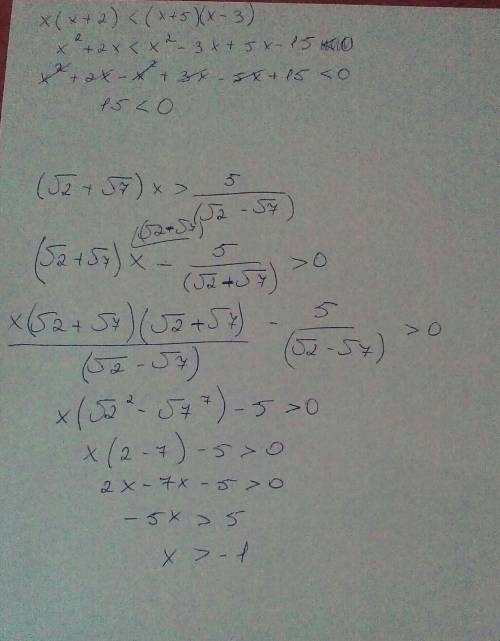 x(x+2) < (x+5)(x-3)
x² + 2x < x² - 3x + 5x - 15
x² + 2x - x² + 3x - 5x + 15 < 0
15 < 0
(√2 + √7) x > 5/(√2 - √7)
(√2 + √7) x (√2+√7) - 5/(√2 + √7) > 0
x(√2 + √7)(√2 + √7)/(√2 - √7) - 5/(√2 - √7) > 0
x(√2² - √7⁷) - 5 > 0
x(2 - 7) - 5 > 0
2x - 7x - 5 > 0
-5x > 5
x > -1